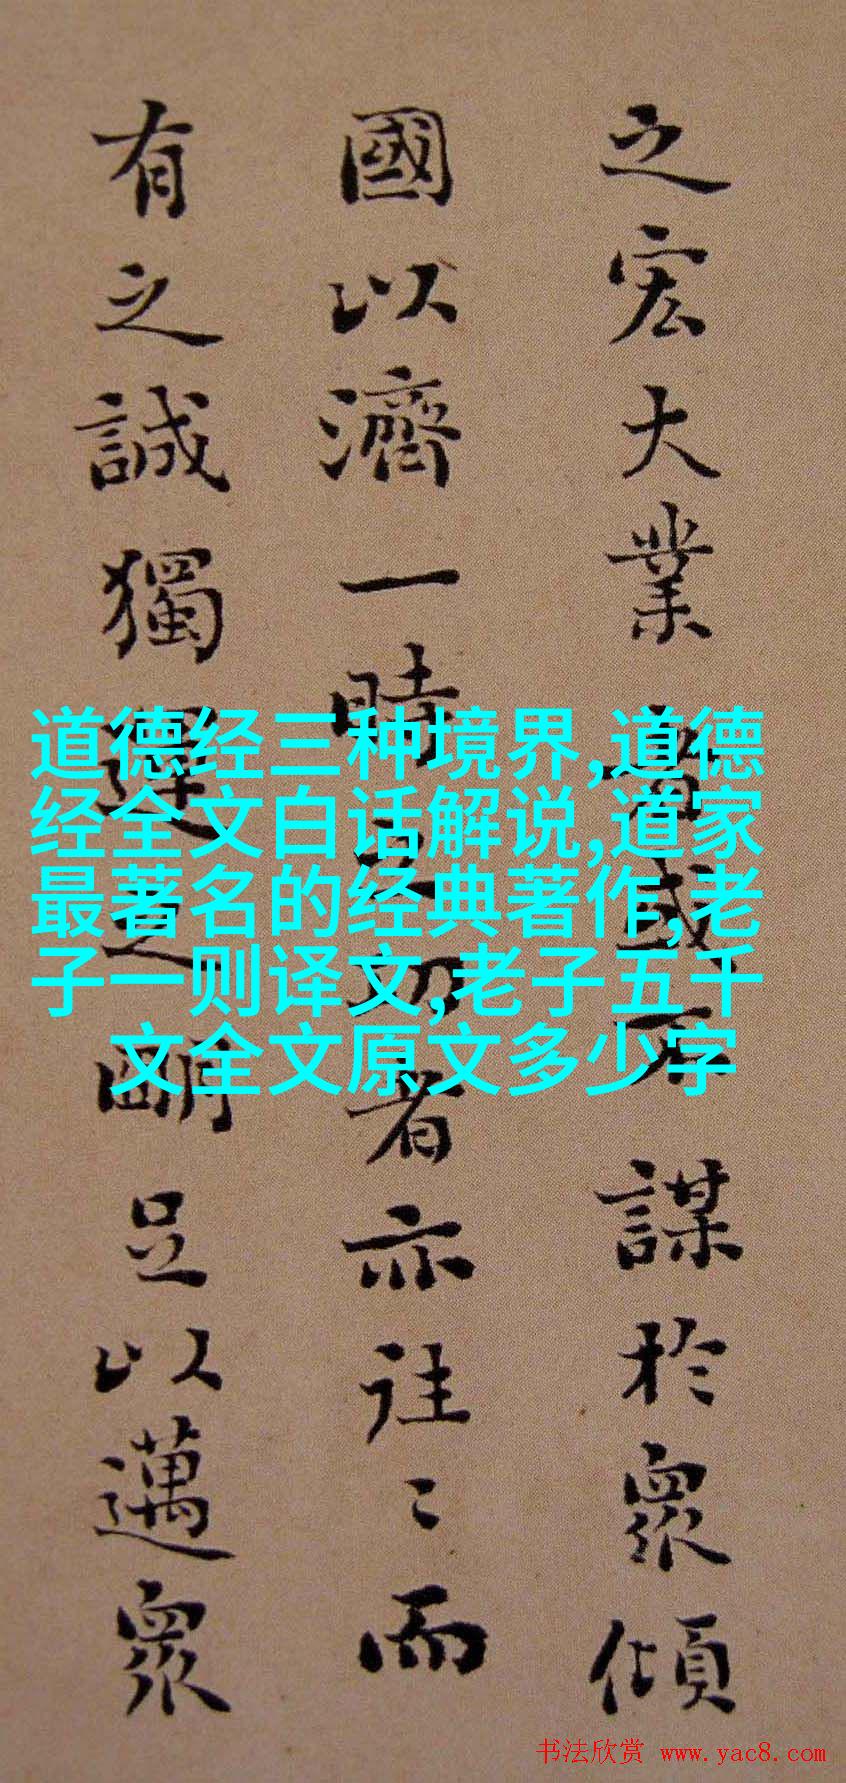 之宏大業 或不謀於衆傾
國以濟一時之功者亦往々而
有之誠獨運之朙足以邁衆
道德经三种境界,道德
经全文白话解说,道家
最著名的经典著作,老
子一则译文,老子五千
文全文原文多少字
书法欣赏 www.yac8.com